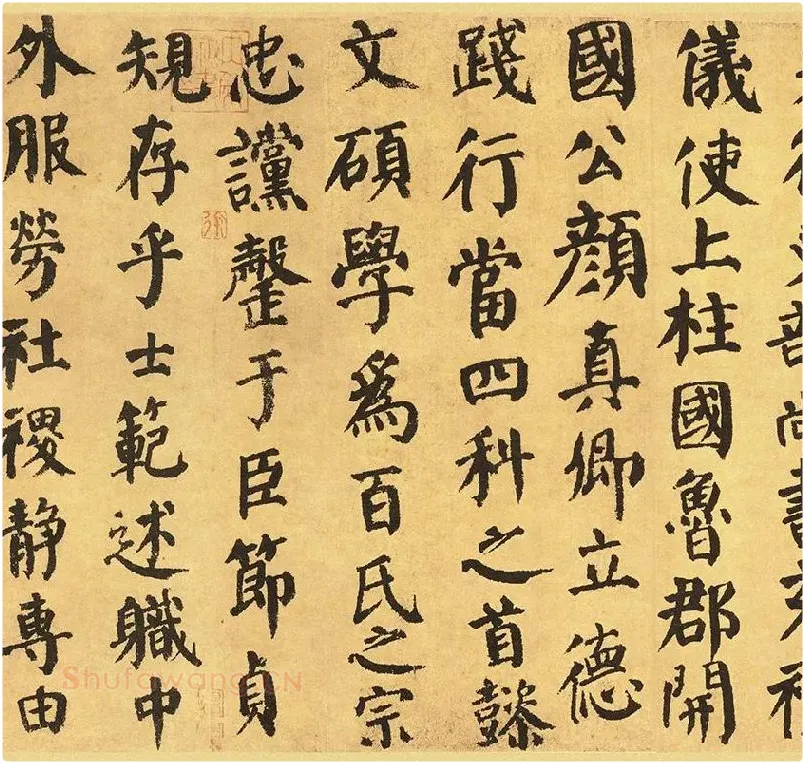 尚書
儀使上柱國魯郡開
國公顏真卿立德
踐行當四科之首懿
文碩學爲百氏之宗
忠讜罄于臣節貞
規存乎士範述職中
外服勞社稷靜專由
Shufawang.CN